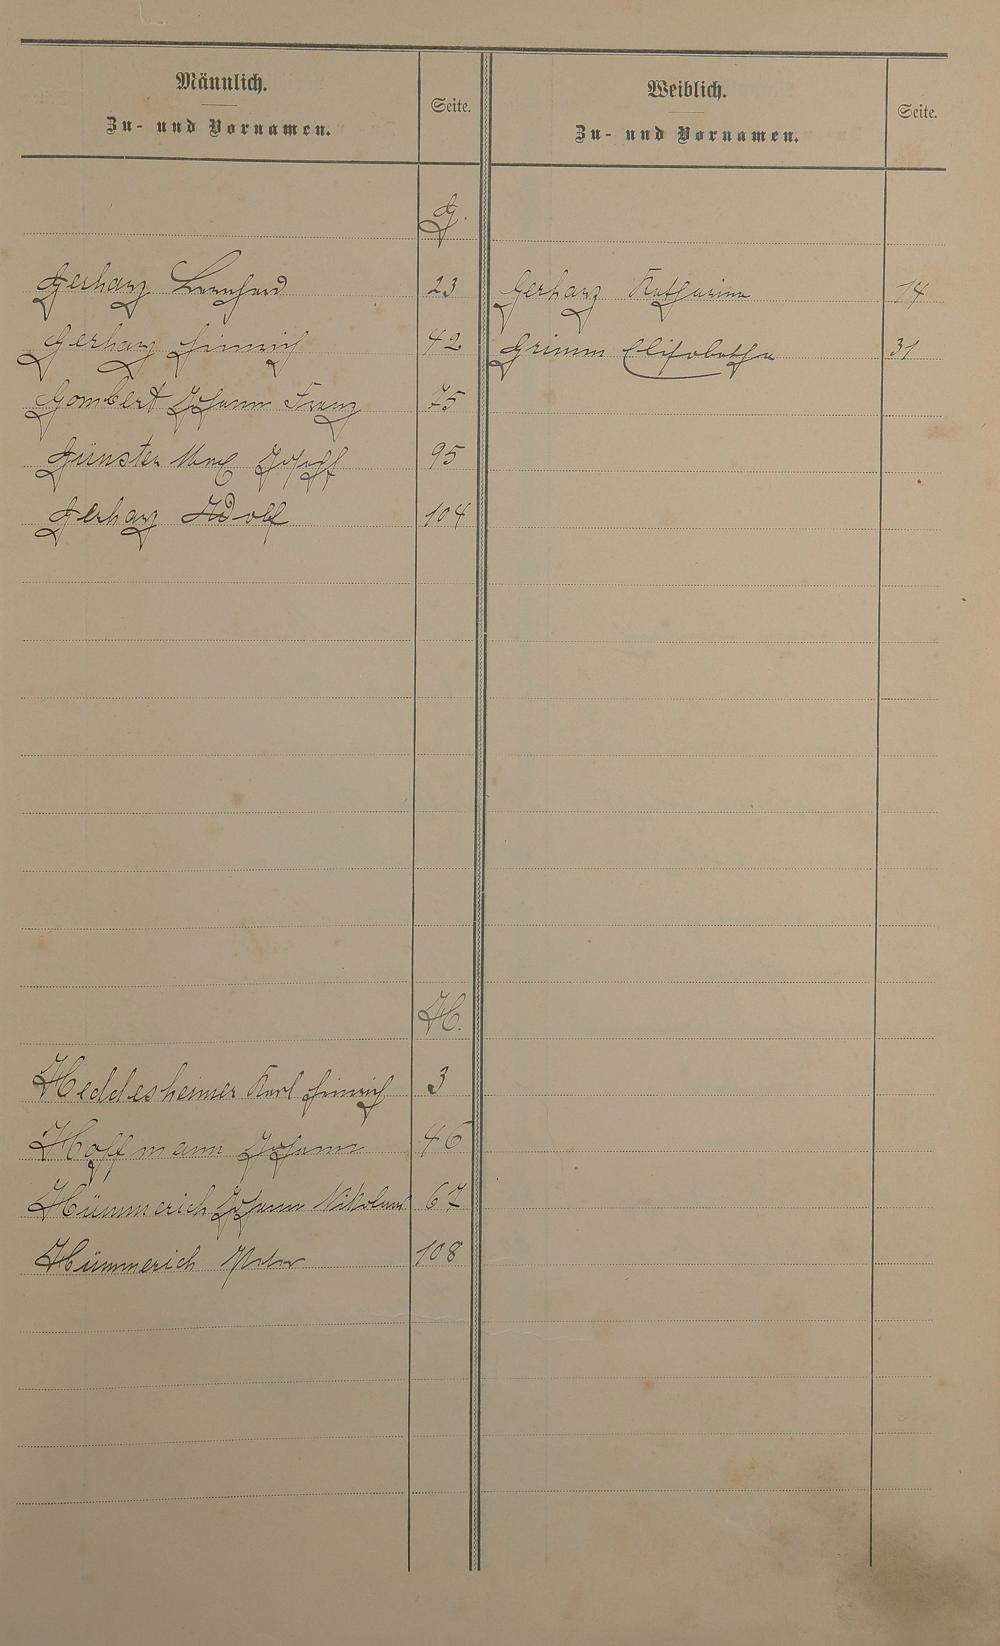 Männlich.
Zu- und Vornamen.
Seite.
Weiblich.
Zu- und Vornamen.
Seite.
G.
Gerharz Bernhard 23 Gerharz Katharina 14
Gerharz Heinrich 42 Grimm Elisabetha 31
Gombert Johann Franz 75
Günster Josef 95
Gerharz Adolf 104
H.
Heddesheimer Karl Heinrich 3
Hoffmann Johann 46
Hümmerich Johann Nikolaus 67
Hümmerich Peter 108